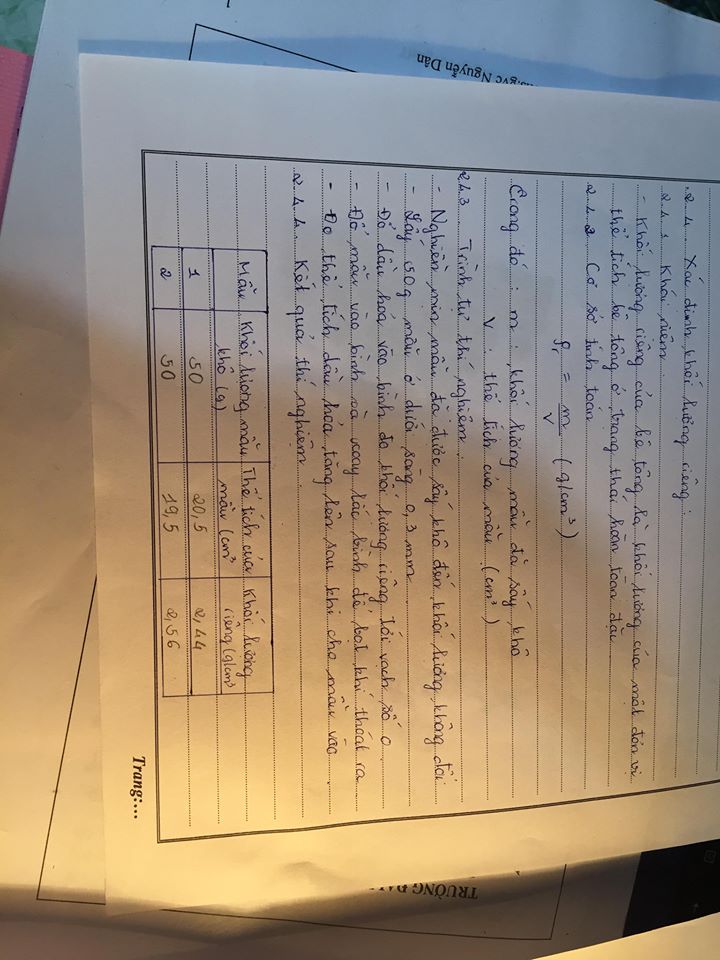 2.4. Xác định khối lượng riêng :
2.4.1. Khái niệm
- Khối lượng riêng của bê tông là khối lượng của một đơn vị
thể tích bê tông ở trạng thái hoàn toàn đặc
2.4.2 Cơ sở tính toán
ρr = m/V (g/cm³)
Trong đó : m : khối lượng mẫu đã sấy khô
V : thể tích của mẫu (cm³)
2.4.3 Trình tự thí nghiệm :
- Nghiền mịn mẫu đã được sấy khô đến khối lượng không đổi
- Lấy 50g mẫu ở dưới sàng 0,3mm
- Đổ dầu hỏa vào bình đo khối lượng riêng tới vạch số 0
- Đổ mẫu vào bình và xoay lắc bình để bọt khí thoát ra
- Đo thể tích dầu hỏa tăng lên sau khi cho mẫu vào
2.4.4. Kết quả thí nghiệm
Mẫu | Khối lượng mẫu khô (g) | Thể tích của mẫu (cm³ | Khối lượng riêng (g/cm³
1 | 50 | 20,5 | 2,44
2 | 50 | 19,5 | 2,56
Trang:...
Nguyễn Dân
TRƯỜNG ĐẠI